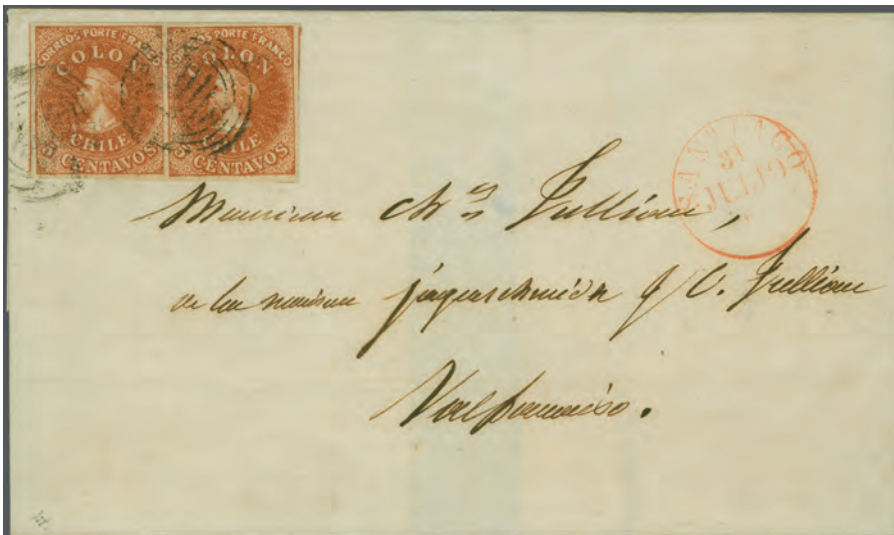 CORREOS PORTE FRANCO
COLON
CHILE
5 CENTAVOS
CORREOS PORTE FRANCO
COLON
CHILE
5 CENTAVOS
SANTIAGO
31
JULIO
Monsieur Ch.s Jullian,
de la maison Jagerschmidt & C. Jullian
Valparaiso.